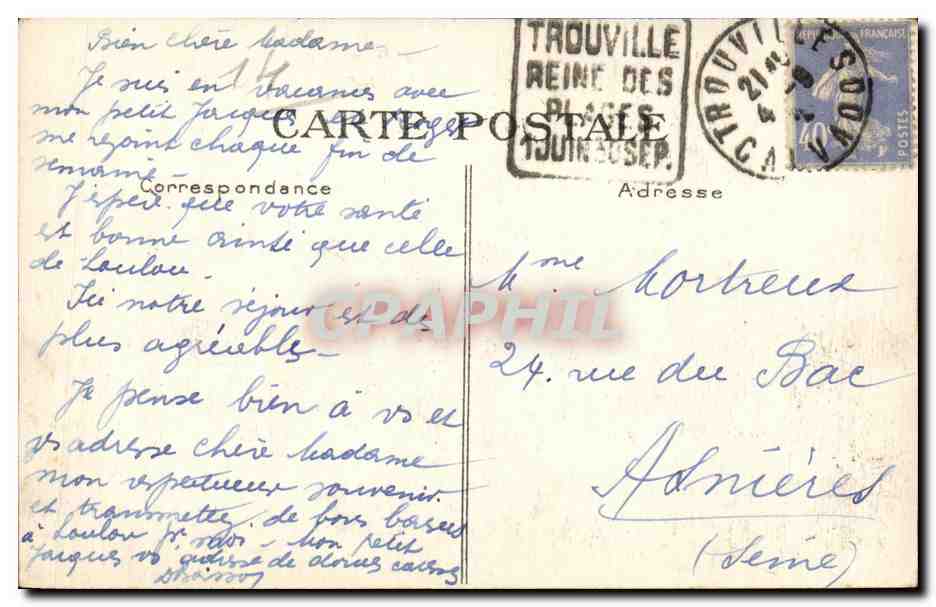 Bien chère Madame -
Je suis en vacances avec
mon petit Jacques et
me rejoint chaque fin de
semaine -
J'espère que votre santé
est bonne ainsi que celle
de Loulou.
Ici notre séjour est des
plus agréables -
Je pense bien à vs et
vs adresse chère Madame
mon respectueux souvenir
et transmettez de bons baisers
à Loulou pr moi - Mon petit
Jacques vs adresse de douces caresses
CARTE POSTALE
Correspondance
Adresse
TROUVILLE
REINE DES
PLAGES
1 JUIN 30 SEP.
TROUVILLE S
CALVADOS
21
4
RÉPUBLIQUE FRANÇAISE
40
POSTES
Mme Mortreux
24. rue du Bac
Asnières
(Seine)
CPAPHIL